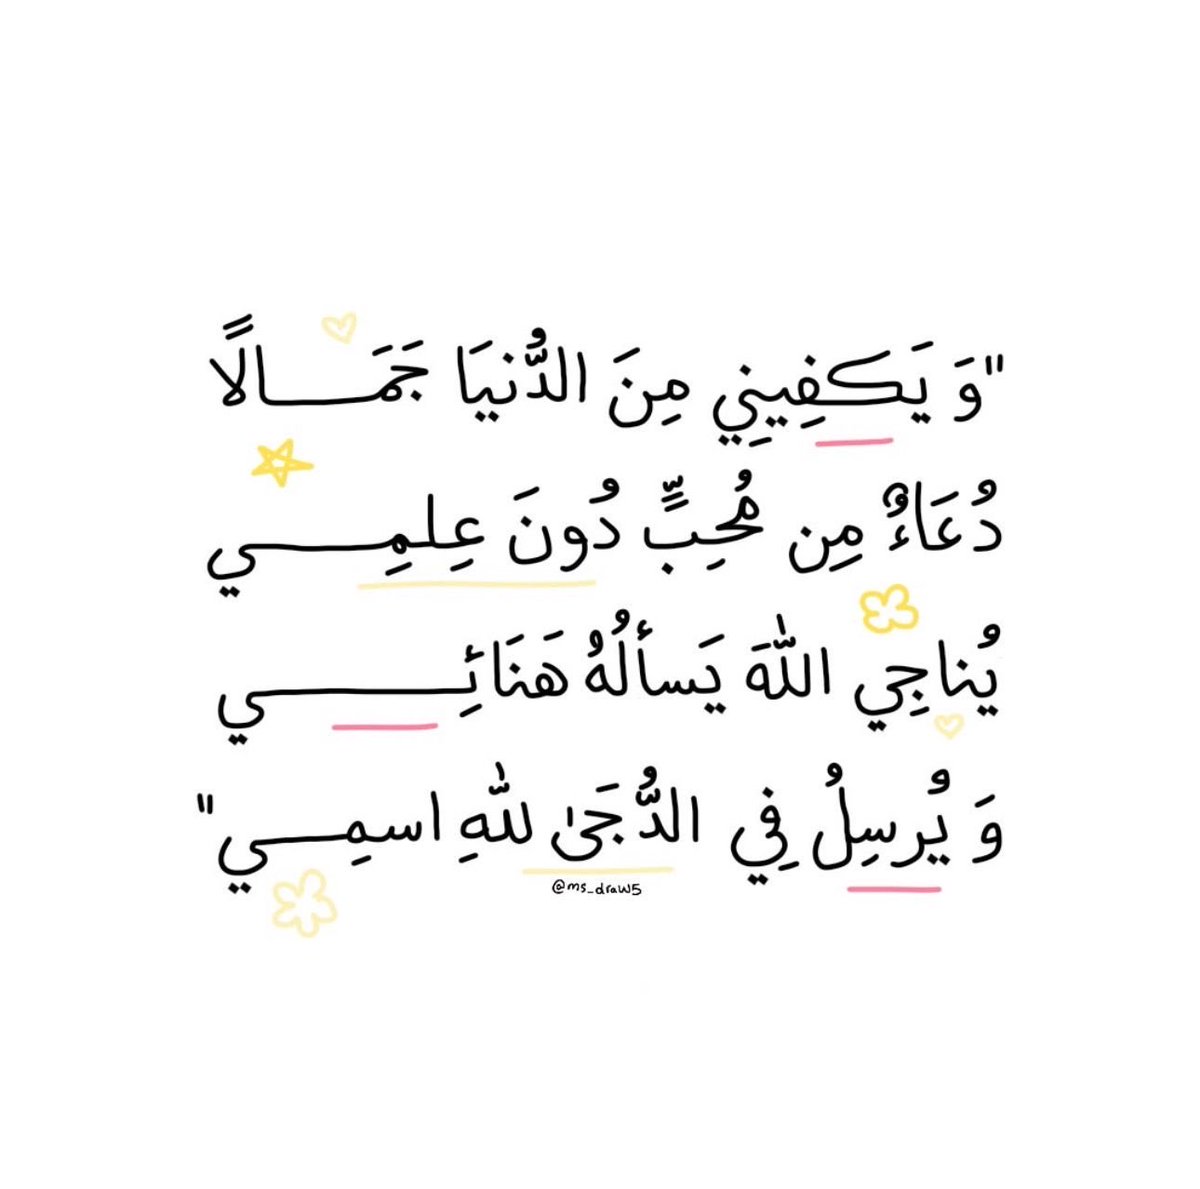 "وَ يَكفِينِي مِنَ الدُّنيَا جَمَالًا
دُعَاءٌ مِن مُحِبٍّ دُونَ عِلمِي
يُناجِي اللّٰهَ يَسألُهُ هَنَائِي
وَ يُرسِلُ فِي الدُّجَىٰ للّٰهِ اسمِي"
@ms_draw5